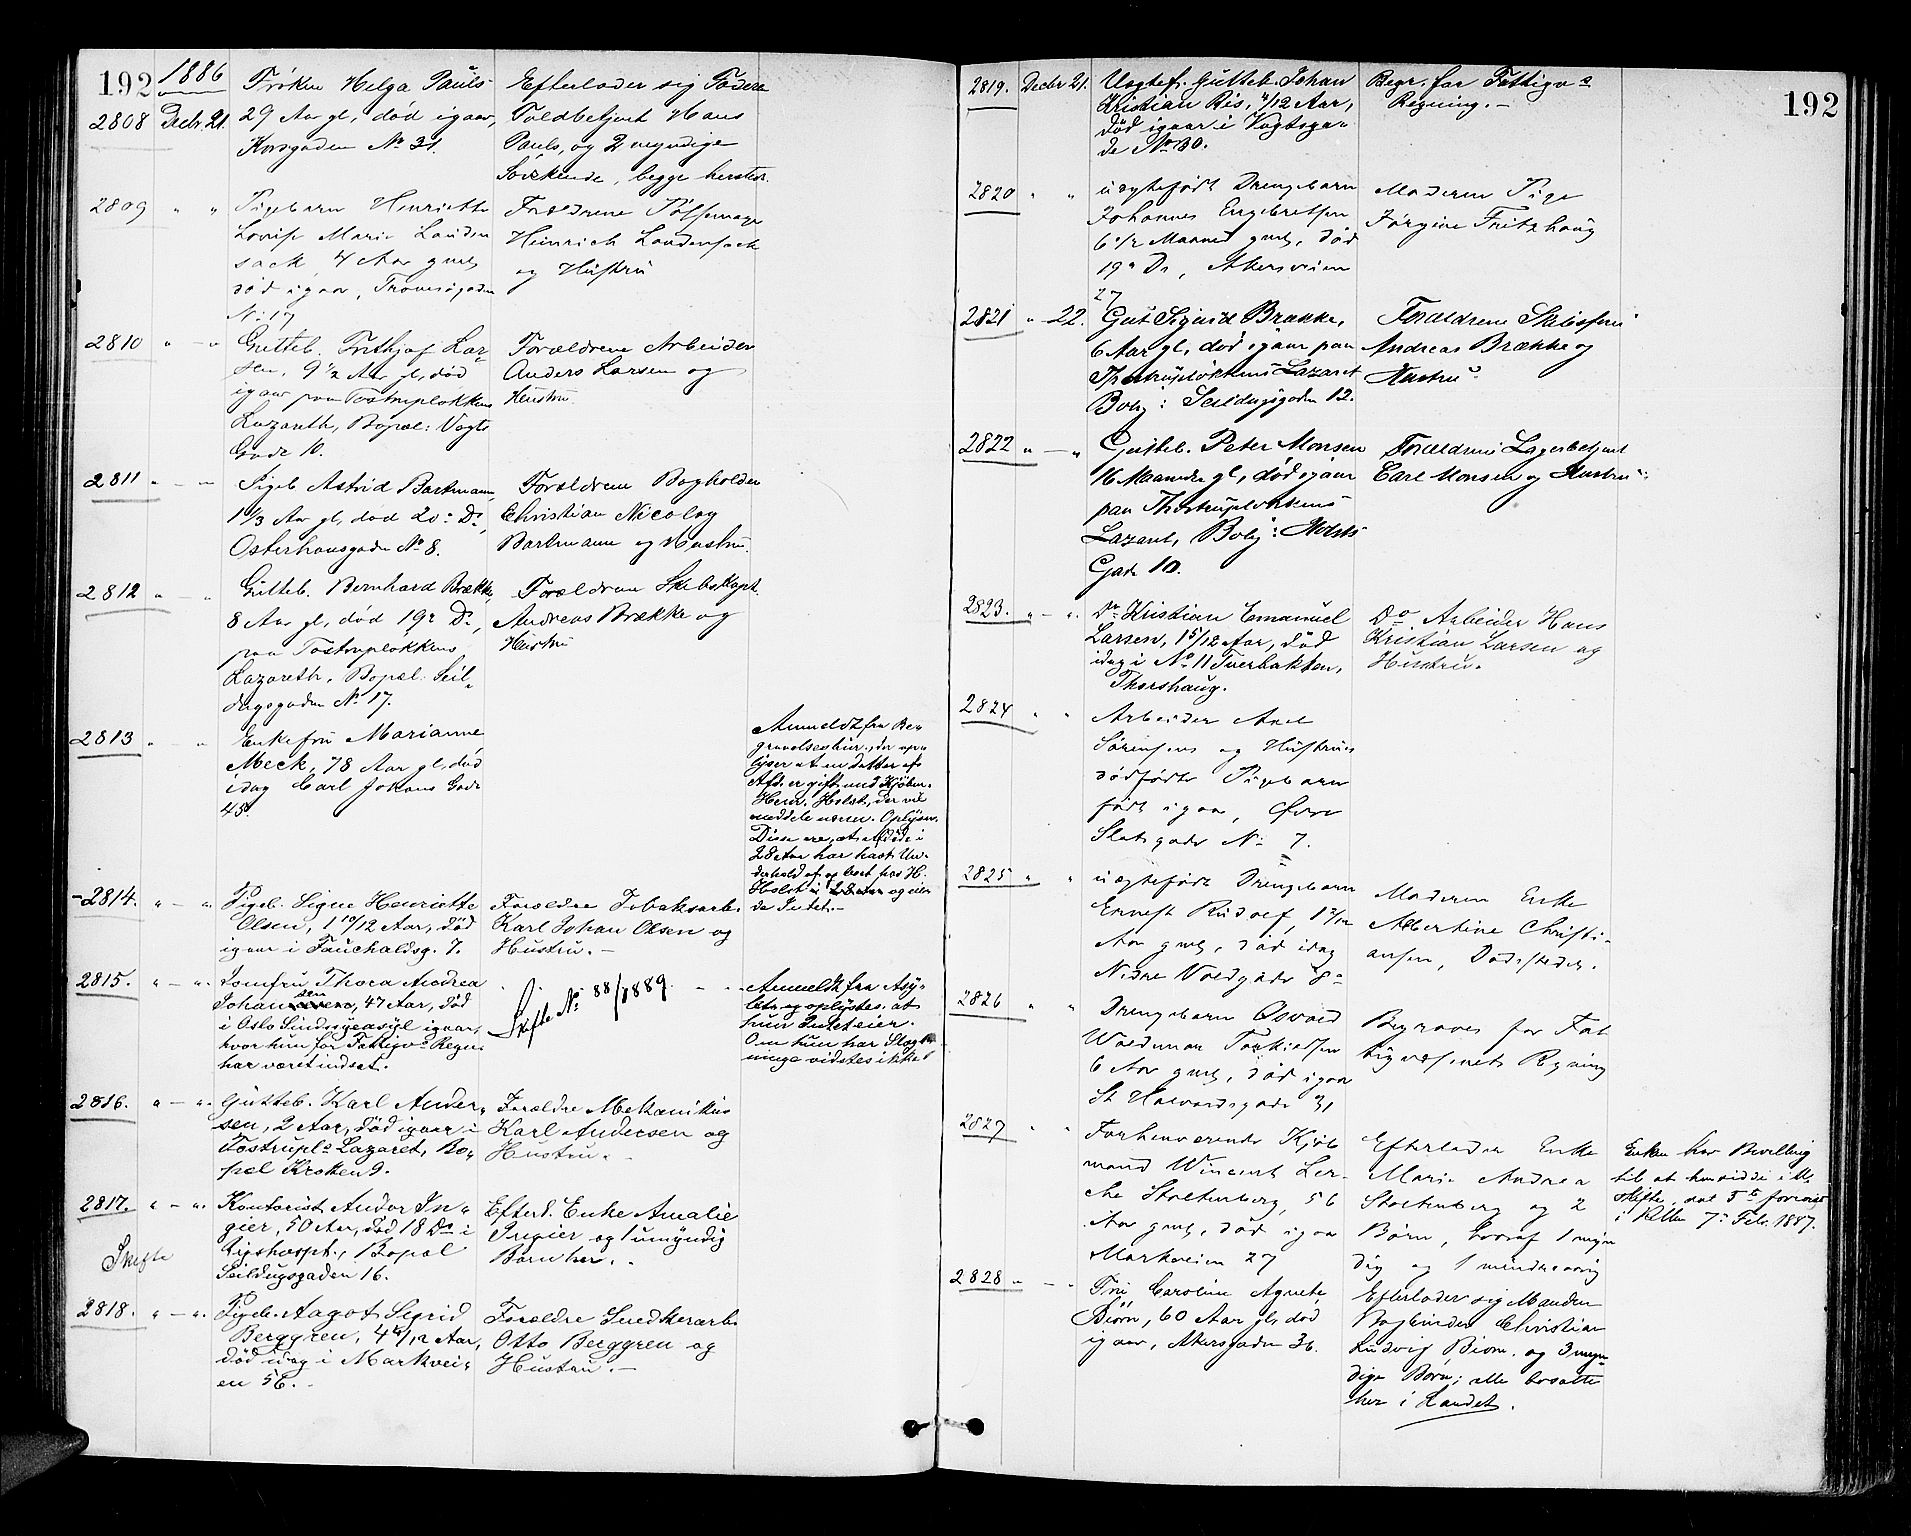 192
1886
2808 Decbr. 21.
Frøken Helga Pauls
29 Aar gl, død igaar,
Korsgaden No 31.
Efterlader sig Fader
Toldbetjent Hans
Pauls, og 2 myndige
Søskende, begge
2809 " "
Pigebarn Henriette
Lovise Marie Lauden
sack, 4 Aar gml,
død igaar,
No 17
Forældrene
Heinrich Laudensack
og Hustru
2810 " - "
Gutteb. Frithjof Lar-
sen, 9 1/2 Aar gl, død
igaar paa Tostrupløkkens
Lazareth, Bopæl: Vogts
Gade 10.
Forældrene Arbeider
Anders Larsen og
Hustru
2811 " - "
Pigeb Astrid Bartmann,
1 1/3 Aar gl, død 20de Ds,
Osterhausgade No 8.
Forældrene Bogholder
Christian Nicolay
Bartmann og Hustru.
2812 " - "
Gutteb. Bernhard Brække,
8 Aar gl, død 19de Ds,
paa Tostrupløkkens
Lazareth, Bopæl: Seil-
dugsgaden No 17.
Forældrene Skibskapt.
Andreas Brække og
Hustru
2813 " "
Enkefru Marianne
Meck, 78 Aar gl, død
idag Carl Johans Gade
45.
Anmeldt fra Be-
gravelsesbur., der op-
lyser at en Datter af
Afd. er gift med Kjøbm.
Henr. Holst, der vil
meddele nærm. Oplysn.
Disse ere, at afdøde i
28 Aar har havt Un-
derhold af og boet hos H.
Holst i 28 Aar og eier
de Intet.-
-2814. " - "
Pigeb. Signe Henriette
Olsen, 1 10/12 Aar, død
igaar i Fauchaldsg. 7.
Forældre Tobaksarb.
Karl Johan Olsen og
Hustru.-
2815. " - "
Jomfru Thora Andrea
Johansen, 47 Aar, død
i Oslo Sindssygeasyl igaar,
hvor hun for Fattigvs Regn.
har været indsat.
Skifte No 88/1889.
Anmeldt fra Asy-
let og oplystes, at
hun Intet eier.
Om hun har Slægt-
ninge vidstes ikke.
2816. " - "
Gutteb. Karl Ander-
sen, 2 Aar, død igaar i
Tostrupls Lazaret, Bo-
pæl Kroken 9.
Forældre Mekanikus
Karl Andersen og
Hustru.-
2817. " - "
Skifte
Kontorist Andor In-
gier, 50 Aar, død 18 Ds i
Rigshospt., Bopæl
Seildugsgaden 16.
Efterl. Enke Amalie
Ingier og 1 umyndig
Barn her.
2818. " - "
Pigeb. Aagot Sigrid
Berggren, 4 Aar,
død idag i Markvei-
en 56.-
Forældre Snedkerarb.
Otto Berggren og
Hustru.-
192
2819. Decbr 21.
Uægtef. Gutteb. Johan
Kristian Ris, 4/12 Aar,
død igaar i Vogtsga-
de No 30.
Begr. for Fattigvs
Regning.-
2820 " "
uægtefødt Drengebarn
Johannes Engebretsen
6 1/2 Maaned gml, død
19de Ds, Akersveien
27
Moderen Pige
Jørgine Fritzhaug
2821 " - 22.
Gut Sigurd Brække,
6 Aar gl, død igaar paa
Thostrupløkkens Lazaret
Bolg: Seildugsgaden 12.
Forældrene
Andreas Brække og
Hustru
2822 " - "
Gutteb. Peter Monsen
16 Maaneder gl, død igaar
paa Thostrupløkkens
Lazaret, Bolg:
Gade 10.
Forældrene Lagerbetjent
Carl Monsen og Hustru
2823. " - "
Do Kristian Emanuel
Larsen, 15/12 Aar, død
idag i No 11 Tverbakken,
Thorshaug.
Do Arbeider Hans
Kristian Larsen og
Hustru.
2824 " "
Arbeider Axel
Sørensens og Hustrues
dødfødte Pigebarn
født igaar, Øvre
Slotsgade No 7.
2825 " "
uægtefødt Drengebarn
Ernest Rudolf, 1 2/12
Aar gml, død idag
Nedre Voldgade 8
Moderen Enke
Albertine Christi-
ansen, Dødsstedet.
2826 " "
Drengebarn Osvald
Woldemar Torkildsen
6 Aar gml, død igaar
St Halvardsgade 31
Begraves for Fat
tigvæsenets Regning
2827 " "
Forhenværende Kjøb
mand Wincent Ler-
che Stoltenberg, 56
Aar gml, død igaar
Markveien 27
Efterlader Enke
Marie Andrea
Stoltenberg og 2
Børn, hvoraf 1 myn
dig og 1 mindreaarig
Enken har Bevilling
til at hensidde i u.
Skifte, dat forevist
i Retten 7de Feb. 1887.
2828 " - "
Fru Caroline Agnete
Biørn, 60 Aar gl, død
igaar, Akersgaden 36.
Efterlader sig Manden
Bogbinder Christian
Ludvig Biørn, og 3 myn-
dige Børn; alle bosatte
her i Landet.